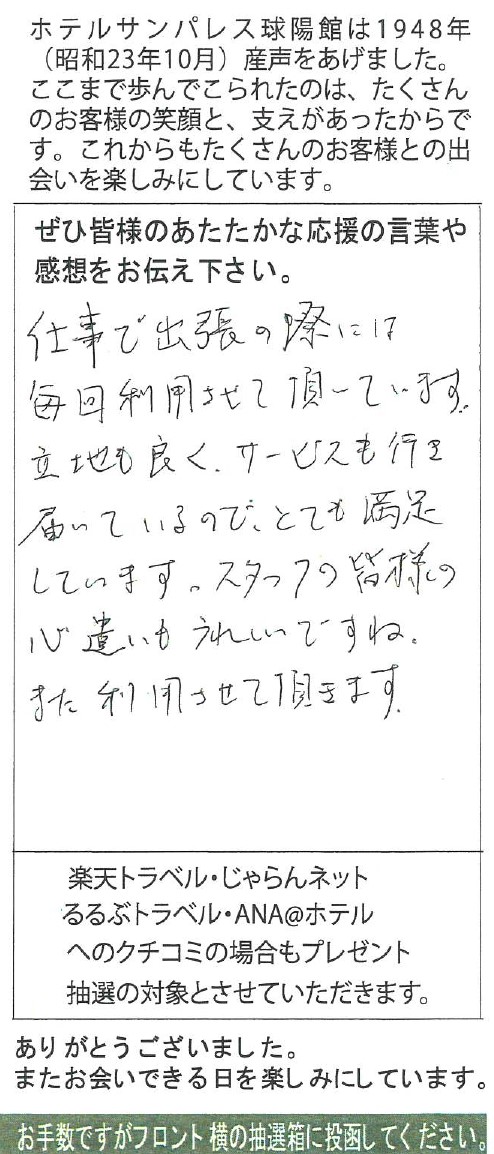 ホテルサンパレス球陽館は1948年
（昭和23年10月）産声をあげました。
ここまで歩んでこられたのは、たくさん
のお客様の笑顔と、支えがあったからで
す。これからもたくさんのお客様との出
会いを楽しみにしています。
ぜひ皆様のあたたかな応援の言葉や
感想をお伝え下さい。
仕事で出張の際には
毎回利用させて頂いています。
立地も良く、サービスも行き
届いているので、とても満足
しています。スタッフの皆様の
心遣いもうれしいですね。
また利用させて頂きます。
楽天トラベル・じゃらんネット
るるぶトラベル・ANA@ホテル
へのクチコミの場合もプレゼント
抽選の対象とさせていただきます。
ありがとうございました。
またお会いできる日を楽しみにしています。
お手数ですがフロント横の抽選箱に投函してください。